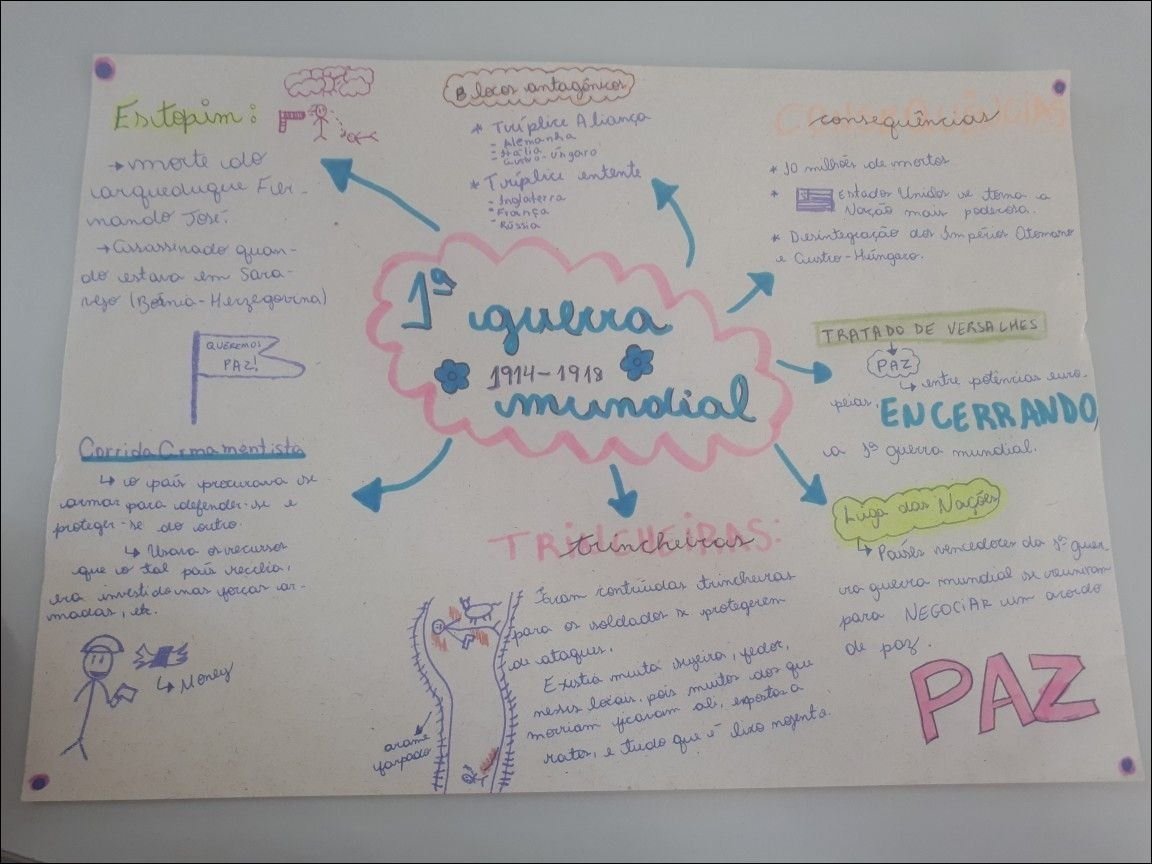 Estopim:
→ morte do
arqueduque Fer-
nando José.
→ Assassinado quan-
do estava em Sara-
vejo (Bósnia-Herzegovina)
QUEREMOS
PAZ!
Corrida Armamentista
↳ o país procurava se
armar para defender-se e
proteger-se do outro.
↳ Usava os recursos
que o tal país recebia,
era investido nas forças ar-
madas, etc.
↳ Money
Blocos antagônicos
* Tríplice Aliança
- Alemanha
- Itália
- Austro-Úngaro
* Tríplice entente
- Inglaterra
- França
- Rússia
1ª guerra
1914-1918
mundial
TRINCHEIRAS:
trincheiras
Foram contruídas trincheiras
para os soldados se protegerem
de ataques.
Existia muita sujeira, fedor,
nesses locais, pois muitos dos que
morriam ficavam ali, expostos a
ratos, e tudo que é lixo nojento.
arame
farpado
CONSEQUÊNCIAS
consequências
* 10 milhões de mortos
* Estados Unidos se torna a
Nação mais poderosa.
* Desintegração dos Impérios Otomano
e Austro-Húngaro.
TRATADO DE VERSALHES
PAZ
↳ entre potências euro-
peias, ENCERRANDO
a 1ª guerra mundial.
Liga das Nações
↳ Países vencedores da 1ª guer-
ra guerra mundial se reuniram
para NEGOCIAR um acordo
de paz.
PAZ